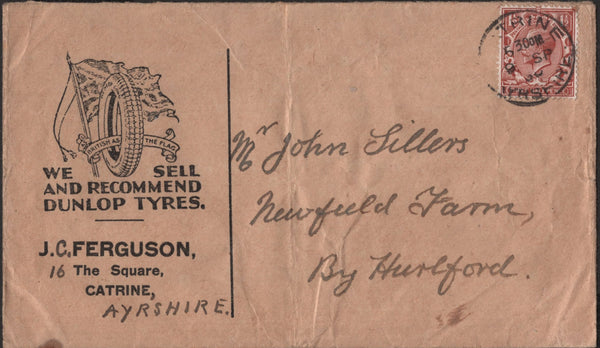 BRITISH AS THE FLAG
WE SELL
AND RECOMMEND
DUNLOP TYRES.
J.C. FERGUSON,
16 The Square,
CATRINE,
AYRSHIRE.
Mr John Sillers
Newfield Farm,
By Hurlford.
CATRINE
AYRSHIRE
SP